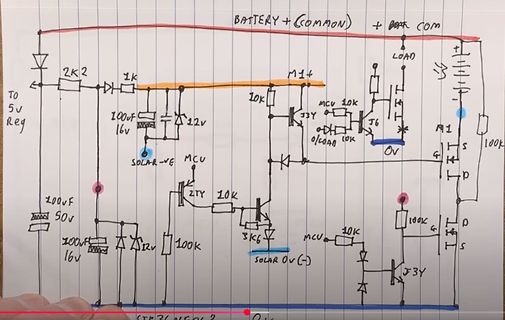 BATTERY + (COMMON)
+ COM
LOAD
TO
5V
Reg
2K2
1K
M1+
10K
J3Y
MCU
10K
O/LOAD
10K
J6
0V
100uF
16V
12V
SOLAR -VE
MCU
2TY
10K
3K6
SOLAR 0V (-)
M1
S
G
D
100K
100uF
50V
100uF
16V
12V
100K
MCU
10K
100K
J3Y
G
D
S